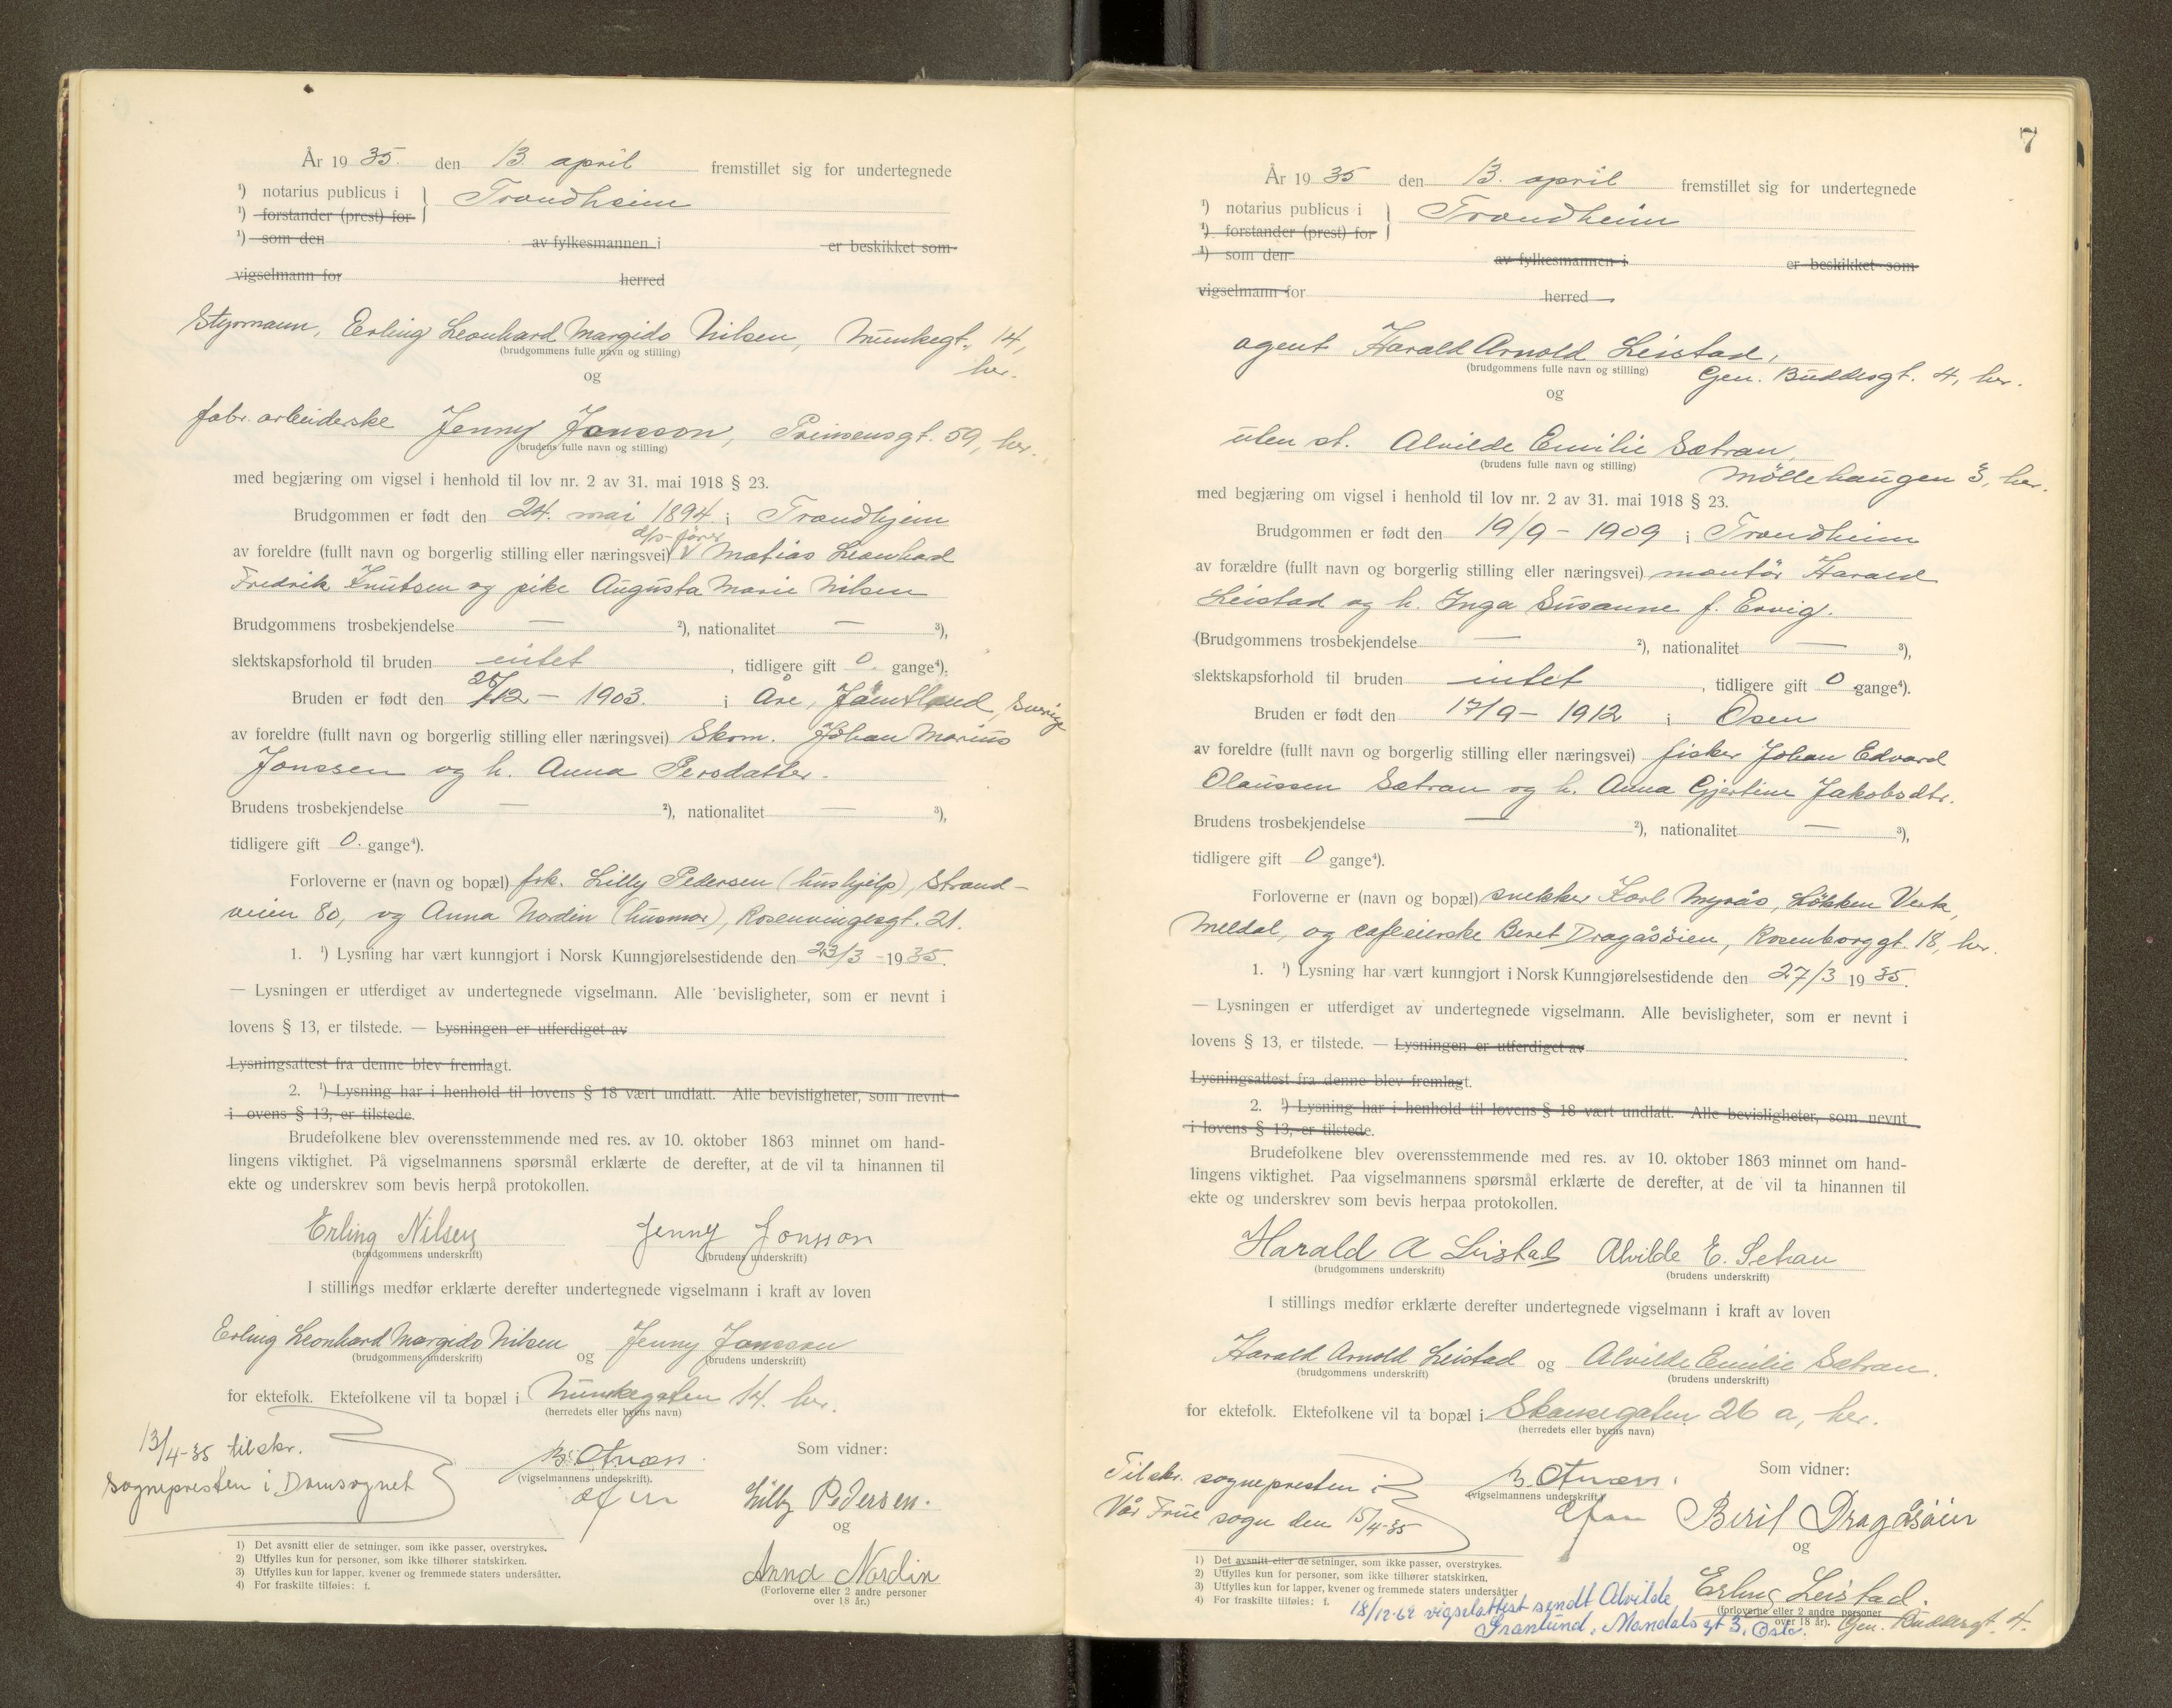 År 19 35. den 13. april fremstillet sig for undertegnede
¹) notarius publicus i } Trondheim
¹) forstander (prest) for
¹) som den av fylkesmannen i er beskikket som
vigselmann for herred
Styrmann, Erling Leonhard Margido Nilsen, Munkegt. 14,
(brudgommens fulle navn og stilling)
her.
og
fabr. arbeiderske Jenny Jonsson, Prinsensgt. 59, her.
(brudens fulle navn og stilling)
med begjæring om vigsel i henhold til lov nr. 2 av 31. mai 1918 § 23.
Brudgommen er født den 24. mai 1894 i Trondhjem
d/s-fører
av foreldre (fullt navn og borgerlig stilling eller næringsvei) V Matias Leonhard
Fredrik Knutsen og pike Augusta Marie Nilsen
Brudgommens trosbekjendelse — ²), nationalitet — ³),
slektskapsforhold til bruden intet, tidligere gift 0. gange⁴).
Bruden er født den 25/12 – 1903. i Åre, Jämtland, Sverige
av foreldre (fullt navn og borgerlig stilling eller næringsvei) Skom. Johan Marius
Jonssen og h. Anna Persdatter.
Brudens trosbekjendelse — ²), nationalitet — ³),
tidligere gift 0. gange⁴).
Forloverne er (navn og bopæl) frk. Lilly Pedersen (hushjelp), Strand-
veien 80, og Anna Nordin (husmor), Rosenvingesgt. 21.
1. ¹) Lysning har vært kunngjort i Norsk Kunngjørelsestidende den 23/3 – 19 35.
— Lysningen er utferdiget av undertegnede vigselmann. Alle bevisligheter, som er nevnt i
lovens § 13, er tilstede. — Lysningen er utferdiget av
Lysningsattest fra denne blev fremlagt.
2. ¹) Lysning har i henhold til lovens § 18 vært undlatt. Alle bevisligheter, som nevnt
i ovens § 13, er tilstede.
Brudefolkene blev overensstemmende med res. av 10. oktober 1863 minnet om hand-
lingens viktighet. På vigselmannens spørsmål erklærte de derefter, at de vil ta hinannen til
ekte og underskrev som bevis herpå protokollen.
Erling Nilsen Jenny Jonsson
(brudgommens underskrift) (brudens underskrift)
I stillings medfør erklærte derefter undertegnede vigselmann i kraft av loven
Erling Leonhard Margido Nilsen og Jenny Jonsson
(brudgommens underskrift) (brudens underskrift)
for ektefolk. Ektefolkene vil ta bopæl i Munkegaten 14. her.
(herredets eller byens navn)
13/4-35 tilskr.
sognepresten i Domsognet
(vigselmannens underskrift).
Som vidner:
Lilly Pedersen.
og
Anna Nordin
(Forloverne eller 2 andre personer
over 18 år.)
1) Det avsnitt eller de setninger, som ikke passer, overstrykes.
2) Utfylles kun for personer, som ikke tilhører statskirken.
3) Utfylles kun for lapper, kvener og fremmede staters undersåtter.
4) For fraskilte tilføies: f.
7
År 19 35 den 13. april fremstillet sig for undertegnede
¹) notarius publicus i } Trondheim
¹) forstander (prest) for
¹) som den av fylkesmannen i er beskikket som
vigselmann for herred
agent Harald Arnold Leistad,
(brudgommens fulle navn og stilling)
Gen. Buddesgt. 4, her.
og
uten st. Alvilde Emilie Sætran,
(brudens fulle navn og stilling)
Möllehaugen 3, her.
med begjæring om vigsel i henhold til lov nr. 2 av 31. mai 1918 § 23.
Brudgommen er født den 19/9 – 1909 i Trondheim
av forældre (fullt navn og borgerlig stilling eller næringsvei) montör Harald
Leistad og h. Inga Susanne f. Ervig.
(Brudgommens trosbekjendelse — ²), nationalitet — ³),
slektskapsforhold til bruden intet, tidligere gift 0 gange⁴).
Bruden er født den 17/9 – 1912 i Osen
av foreldre (fullt navn og borgerlig stilling eller næringsvei) fisker Johan Edvard
Olaussen Sætran og h. Anna Gjertine Jakobsdtr.
Brudens trosbekjendelse — ²), nationalitet — ³),
tidligere gift 0 gange⁴).
Forloverne er (navn og bopæl) snekker Karl Myrås, Lökken Verk,
Meldal, og cafeeierske Beret Dragåsöien, Rosenborggt. 18, her.
1. ¹) Lysning har vært kunngjort i Norsk Kunngjørelsestidende den 27/3 19 35.
— Lysningen er utferdiget av undertegnede vigselmann. Alle bevisligheter, som er nevnt i
lovens § 13, er tilstede. — Lysningen er utferdiget av
Lysningsattest fra denne blev fremlagt.
2. ¹) Lysning har i henhold til lovens § 18 vært undlatt. Alle bevisligheter, som nevnt
i lovens § 13, er tilstede.
Brudefolkene blev overensstemmende med res. av 10. oktober 1863 minnet om hand-
lingens viktighet. Paa vigselmannens spørsmål erklærte de derefter, at de vil ta hinannen til
ekte og underskrev som bevis herpaa protokollen.
Harald A Leistad Alvilde E. Setran
(brudgommens underskrift) (brudens underskrift)
I stillings medfør erklærte derefter undertegnede vigselmann i kraft av loven
Harald Arnold Leistad og Alvilde Emilie Sætran.
(brudgommens underskrift) (brudens underskrift)
for ektefolk. Ektefolkene vil ta bopæl i Skansegaten 26 a, her.
(herredets eller byens navn)
Tilskr. sognepresten i
Vår Frue sogn den 15/4-35
(vigselmannens underskrift)
Som vidner:
Berit Dragåsöien
og
Erling Leistad.
(forloverne eller 2 andre personer
over 18 år). Gen. Buddesgt. 4.
1) Det avsnitt eller de setninger, som ikke passer, overstrykes.
2) Utfylles kun for personer, som ikke tilhører statskirken.
3) Utfylles kun for lapper, kvener og fremmede staters undersåtter
4) For fraskilte tilføies: f.
18/12-62 vigselattest sendt Alvilde
Granlund, Mandals gt 3, Oslo.